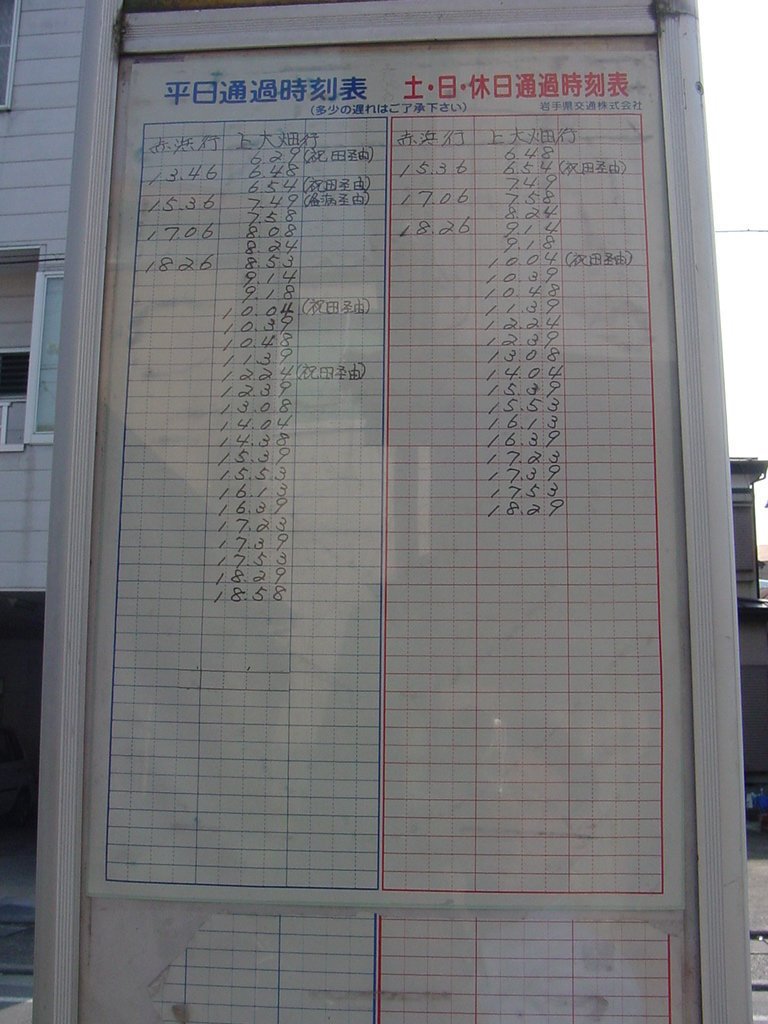 平日通過時刻表
(多少の遅れはご了承下さい)
赤浜行 上大畑行
6.29 (祝田経由)
13.46 6.48
6.54 (祝田経由)
15.36 7.49
7.58
17.06 8.08
8.24
18.26 8.53
9.14
9.18
10.04 (祝田経由)
10.39
10.48
11.39
12.24 (祝田経由)
12.39
13.08
14.04
14.38
15.39
15.53
16.13
16.39
17.23
17.39
17.53
18.29
18.58
土・日・休日通過時刻表
岩手県交通株式会社
赤浜行 上大畑行
6.48
15.36 6.54 (祝田経由)
7.49
17.06 7.58
8.24
18.26 9.14
9.18
10.04 (祝田経由)
10.39
10.48
11.39
12.24
12.39
13.08
14.04
15.39
15.53
16.13
16.39
17.23
17.39
17.53
18.29